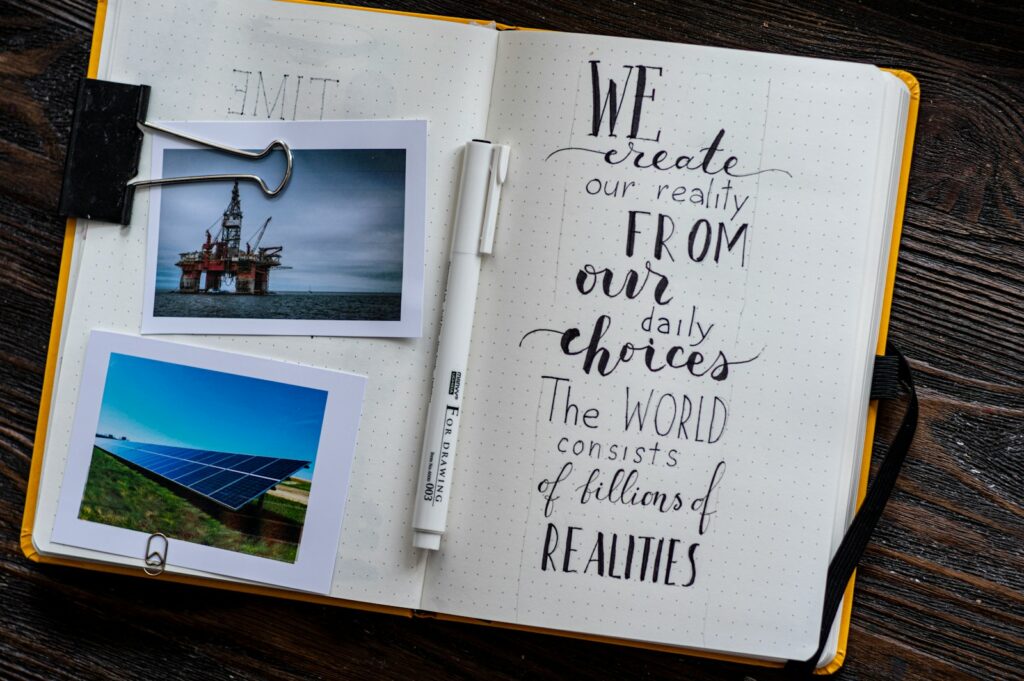 TIME
marvy
FOR DRAWING
003
WE
create
our reality
FROM
our
daily
choices
The WORLD
consists
of billions of
REALITIES